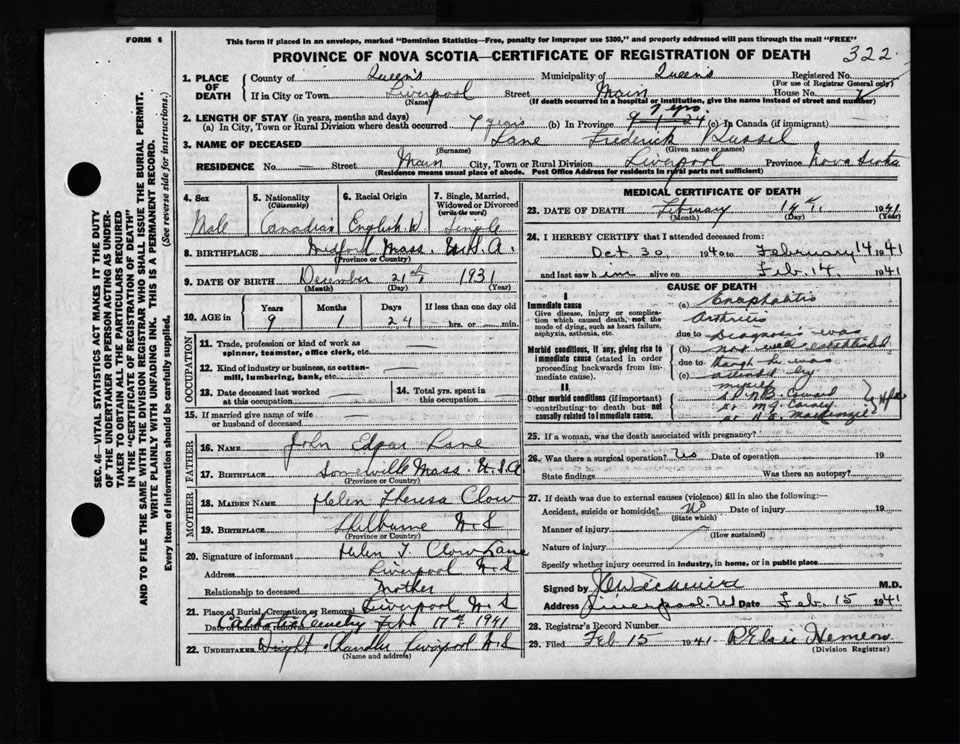 FORM 6
This form if placed in an envelope, marked "Dominion Statistics—Free, penalty for improper use $300," and properly addressed will pass through the mail "FREE"
PROVINCE OF NOVA SCOTIA—CERTIFICATE OF REGISTRATION OF DEATH 322
1. PLACE OF DEATH County of Queen's Municipality of Queen's Registered No.
(For use of Registrar General only)
If in City or Town Liverpool Street Main House No.
(Name) (If death occurred in a hospital or institution, give the name instead of street and number)
2. LENGTH OF STAY (in years, months and days) 7 yrs.
(a) In City, Town or Rural Division where death occurred 7 years (b) In Province 9 - 1 - 24 (c) In Canada (if immigrant)
3. NAME OF DECEASED Lane Frederick Russel
(Surname) (Given name or names)
RESIDENCE No. Street Main City, Town or Rural Division Liverpool Province Nova Scotia
(Residence means usual place of abode. Post Office Address for residents in rural parts not sufficient)
SEC. 46—VITAL STATISTICS ACT MAKES IT THE DUTY
OF THE UNDERTAKER OR PERSON ACTING AS UNDER-
TAKER TO OBTAIN ALL THE PARTICULARS REQUIRED
IN THE "CERTIFICATE OF REGISTRATION OF DEATH"
AND TO FILE THE SAME WITH THE DIVISION REGISTRAR WHO SHALL ISSUE THE BURIAL PERMIT.
WRITE PLAINLY WITH UNFADING INK. THIS IS A PERMANENT RECORD.
Every item of information should be carefully supplied. (See reverse side for instructions.)
4. Sex 5. Nationality (Citizenship) 6. Racial Origin 7. Single, Married, Widowed or Divorced (write the word)
Male Canadian English Single
8. BIRTHPLACE Mass. U.S.A.
(Province or Country)
9. DATE OF BIRTH December 21st 1931
(Month) (Day) (Year)
10. AGE in Years Months Days If less than one day old
9 1 24 hrs. or min.
OCCUPATION
11. Trade, profession or kind of work as spinner, teamster, office clerk, etc.
12. Kind of industry or business, as cotton-mill, lumbering, bank, etc.
13. Date deceased last worked at this occupation 14. Total yrs. spent in this occupation
15. If married give name of wife or husband of deceased
FATHER
16. NAME John Edgar Lane
17. BIRTHPLACE Somerville Mass. U.S.A
(Province or Country)
MOTHER
18. MAIDEN NAME Helen Theresa Clow
19. BIRTHPLACE Shelburne N.S
(Province or Country)
20. Signature of informant Helen T. Clow Lane
Address Liverpool N.S
Relationship to deceased Mother
21. Place of Burial, Cremation or Removal Liverpool N.S
Date of burial or removal Catholic Cemetery Feb. 17th 1941
22. UNDERTAKER Dwight Chandler Liverpool N.S
(Name and address)
MEDICAL CERTIFICATE OF DEATH
23. DATE OF DEATH February 14th, 1941
(Month) (Day) (Year)
24. I HEREBY CERTIFY that I attended deceased from
Oct. 30 1940 to February 14 1941
and last saw him alive on Feb. 14 1941
CAUSE OF DEATH
I
Immediate cause
Give disease, injury or complication which caused death, not the mode of dying, such as heart failure, asphyxia, asthenia, etc.
(a)
due to Diagnosis was
Morbid conditions, if any, giving rise to immediate cause (stated in order proceeding backwards from immediate cause).
(b) not well established
due to though he was
(c) by
myself
II
Other morbid conditions (if important) contributing to death but not causally related to immediate cause.
MacKenzie
25. If a woman, was the death associated with pregnancy?
26. Was there a surgical operation? No Date of operation 19
State findings Was there an autopsy?
27. If death was due to external causes (violence) fill in also the following:—
Accident, suicide or homicide? No Date of injury 19
(State which)
Manner of injury
(How sustained)
Nature of injury
Specify whether injury occurred in industry, in home, or in public place
Signed by M.D.
Address Liverpool Date Feb. 15 1941
28. Registrar's Record Number
29. Filed Feb 15 1941
(Division Registrar)